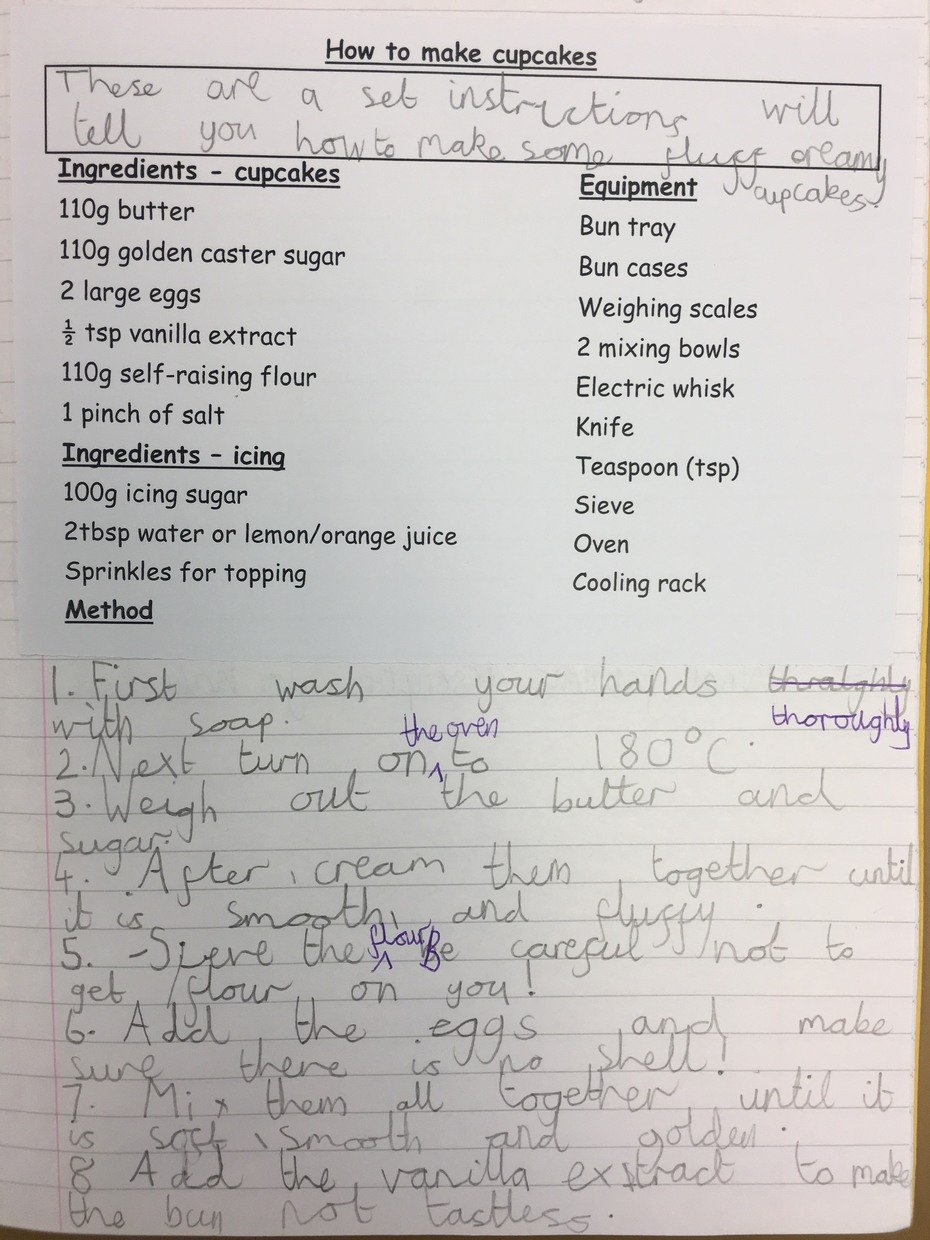 How to make cupcakes
These are a set instructions will
tell you how to make some fluff creamy
cupcakes.
Ingredients - cupcakes
110g butter
110g golden caster sugar
2 large eggs
½ tsp vanilla extract
110g self-raising flour
1 pinch of salt
Ingredients - icing
100g icing sugar
2tbsp water or lemon/orange juice
Sprinkles for topping
Method
Equipment
Bun tray
Bun cases
Weighing scales
2 mixing bowls
Electric whisk
Knife
Teaspoon (tsp)
Sieve
Oven
Cooling rack
1. First wash your hands thralghly
thoroughly
with soap.
the oven
2. Next turn on to 180°C.
3. Weigh out the butter and
sugar.
4. After, cream them together until
it is smooth and fluffy.
flour
5. - Sieve the Be careful not to
get flour on you!
6. Add the eggs and make
sure there is no shell!
7. Mix them all together until it
is soft, smooth and golden.
8 Add the vanilla exstract to make
the bun not tastless.